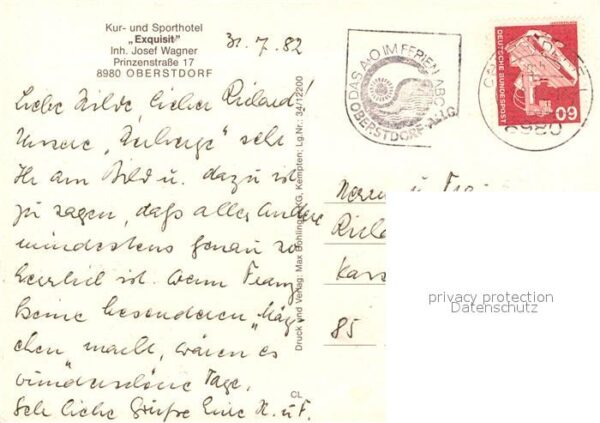 Kur- und Sporthotel
„Exquisit"
Inh. Josef Wagner
Prinzenstraße 17
8980 OBERSTDORF
31.7.82
Liebe Hilde, lieber Richard!
Unsere „Herberge" seht
Ihr am Bild u. dazu ist
zu sagen, daß alles andere
mindestens genau so
herrlich ist. Wenn Franz
keine besonderen „Mäz-
chen" macht, wären es
wunderschöne Tage.
Sehr liebe Grüße Eure H. u. F.
CL
Druck und Verlag: Max Bohling KG, Kempten; Lg.Nr.: 34/12200
DAS A-O IM FERIEN-ABC
OBERSTDORF-ALLG.
DEUTSCHE BUNDESPOST
60
8980
Herrn u. Frau
85
privacy protection
Datenschutz